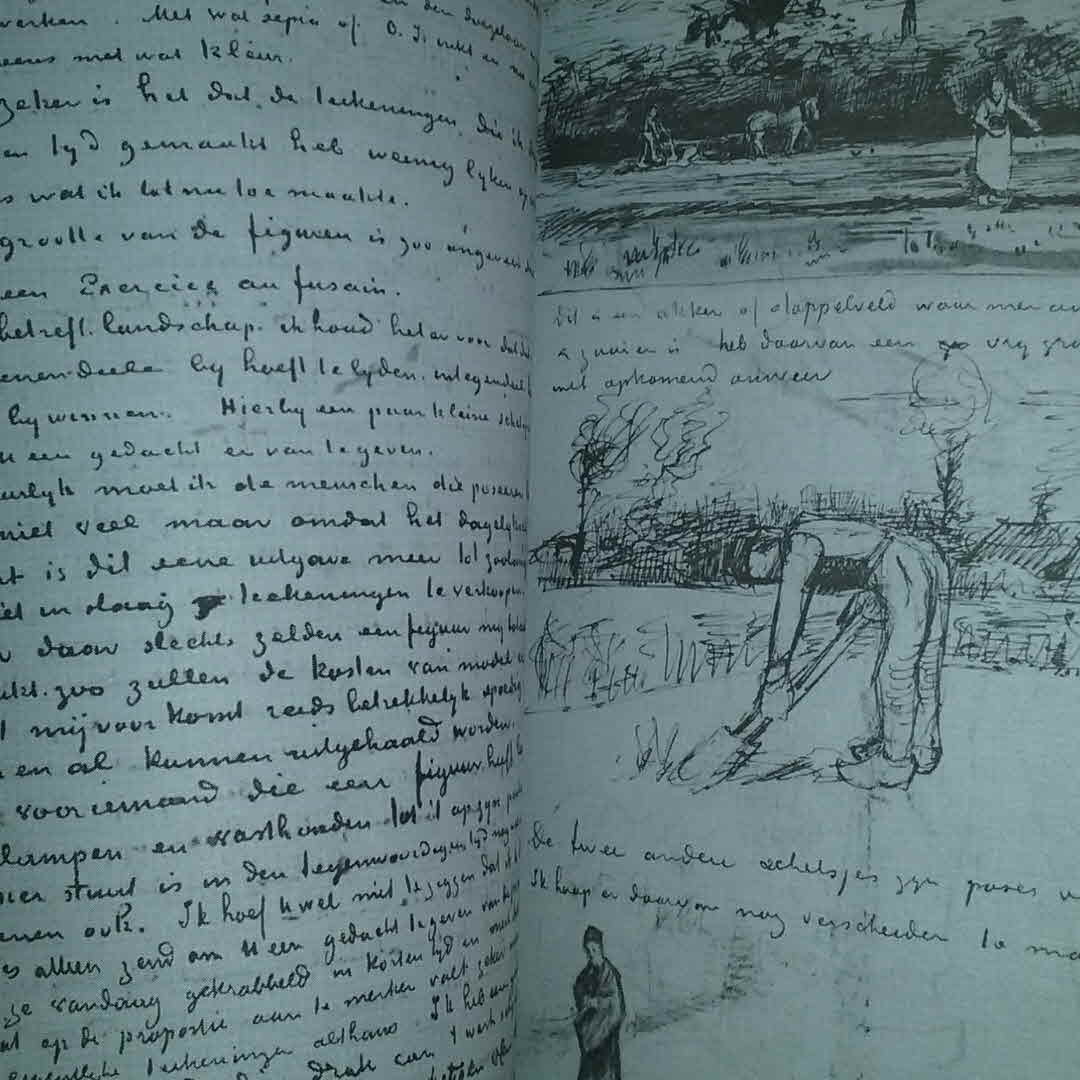 werken. Met wat sepia of O.I. inkt en nu
eens met wat kleur.
zeker is het dat de teekeningen, die ik
en tyd gemaakt heb weinig lyken op
s wat ik tot nu toe maakte.
grootte van de figuren is zoo ongeveer
een Exercice au fusain.
betreft landschap. ik houd het er voor dat dat
by hoeft te lyden, integendeel
by winnen. Hierby een paar kleine
U een gedacht er van te geven.
moet ik de menschen die poseeren
niet veel maar omdat het
is dit eene uitgave meer tot zoolang
in slaag teekeningen te verkoopen.
daar slechts zelden een figuur my
zoo zullen de kosten van model
mij voorkomt reeds betrekkelyk spoedig
en al kunnen uitgehaald worden.
voor iemand die een figuur heeft
klampen en vasthouden tot it op zyn
stuurt is in den tegenwoordigen tyd nog
enen ook. Ik hoef U wel niet te zeggen dat ik
es alleen zend om U een gedacht te geven van
ze vandaag gekrabbeld in korten tyd en
op de proportie aan te merken valt zeker
teekeningen althans. Ik heb
't werk
dit is een akker of stoppelveld waar men
& zaaien is heb daarvan een vry
met opkomend onweer
De twee andere schetsjes zyn poses
Ik hoop er daarvan nog verscheiden te